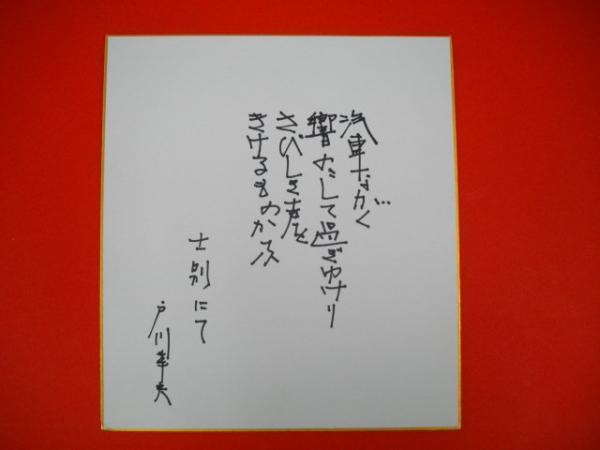 汽車ながく
響かして過ぎゆけり
さびしき声を
きけるものかな
士別にて
戸川幸夫